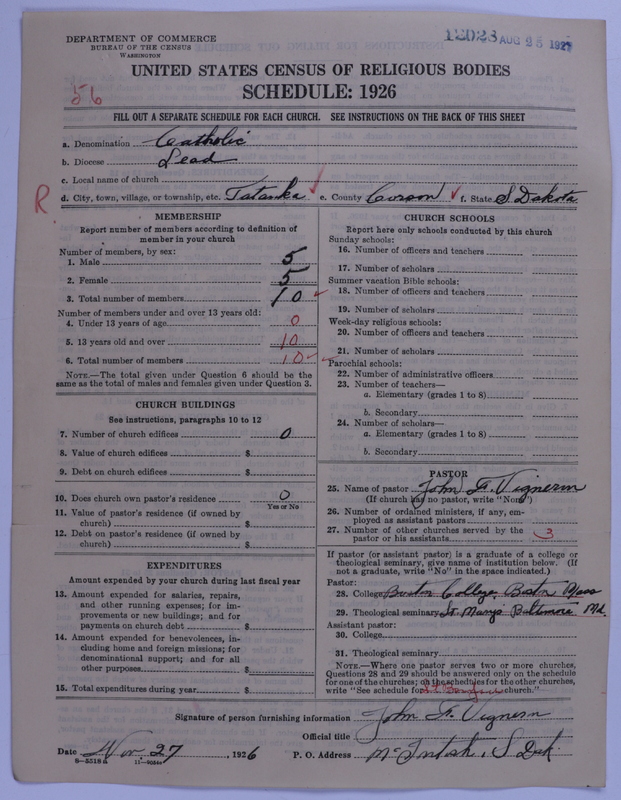 DEPARTMENT OF COMMERCE
BUREAU OF THE CENSUS
WASHINGTON
AUG 25 1927
UNITED STATES CENSUS OF RELIGIOUS BODIES
SCHEDULE: 1926
56
FILL OUT A SEPARATE SCHEDULE FOR EACH CHURCH. SEE INSTRUCTIONS ON THE BACK OF THIS SHEET
a. Denomination Catholic
b. Diocese Lead
c. Local name of church
R
d. City, town, village, or township, etc. Tatanka e. County Corson f. State S. Dakota
MEMBERSHIP
Report number of members according to definition of
member in your church
Number of members, by sex:
1. Male 5
2. Female 5
3. Total number of members 10
Number of members under and over 13 years old:
4. Under 13 years of age 0
5. 13 years old and over 10
6. Total number of members 10
NOTE.—The total given under Question 6 should be the
same as the total of males and females given under Question 3.
CHURCH BUILDINGS
See instructions, paragraphs 10 to 12
7. Number of church edifices 0
8. Value of church edifices $
9. Debt on church edifices $
10. Does church own pastor's residence 0
Yes or No
11. Value of pastor's residence (if owned by
church) $
12. Debt on pastor's residence (if owned by
church) $
EXPENDITURES
Amount expended by your church during last fiscal year
13. Amount expended for salaries, repairs,
and other running expenses; for im-
provements or new buildings; and for
payments on church debt $
14. Amount expended for benevolences, in-
cluding home and foreign missions; for
denominational support; and for all
other purposes $
15. Total expenditures during year $
CHURCH SCHOOLS
Report here only schools conducted by this church
Sunday schools:
16. Number of officers and teachers
17. Number of scholars
Summer vacation Bible schools:
18. Number of officers and teachers
19. Number of scholars
Week-day religious schools:
20. Number of officers and teachers
21. Number of scholars
Parochial schools:
22. Number of administrative officers
23. Number of teachers—
a. Elementary (grades 1 to 8)
b. Secondary
24. Number of scholars—
a. Elementary (grades 1 to 8)
b. Secondary
PASTOR
25. Name of pastor John F. Vignerin
(If church has no pastor, write "None")
26. Number of ordained ministers, if any, em-
ployed as assistant pastors
27. Number of other churches served by the
pastor or his assistants 3
If pastor (or assistant pastor) is a graduate of a college or
theological seminary, give name of institution below. (If
not a graduate, write "No" in the space indicated.)
Pastor:
28. College Boston College, Boston Mass
29. Theological seminary St. Marys Baltimore Md.
Assistant pastor:
30. College
31. Theological seminary
NOTE.—Where one pastor serves two or more churches,
Questions 28 and 29 should be answered only on the schedule
for one of the churches; on the schedules for the other churches,
write "See schedule for church."
Signature of person furnishing information John F. Vignerin
Official title
Date Nov 27, 1926 P. O. Address McIntosh, S Dak.
8—5518a 11—9054